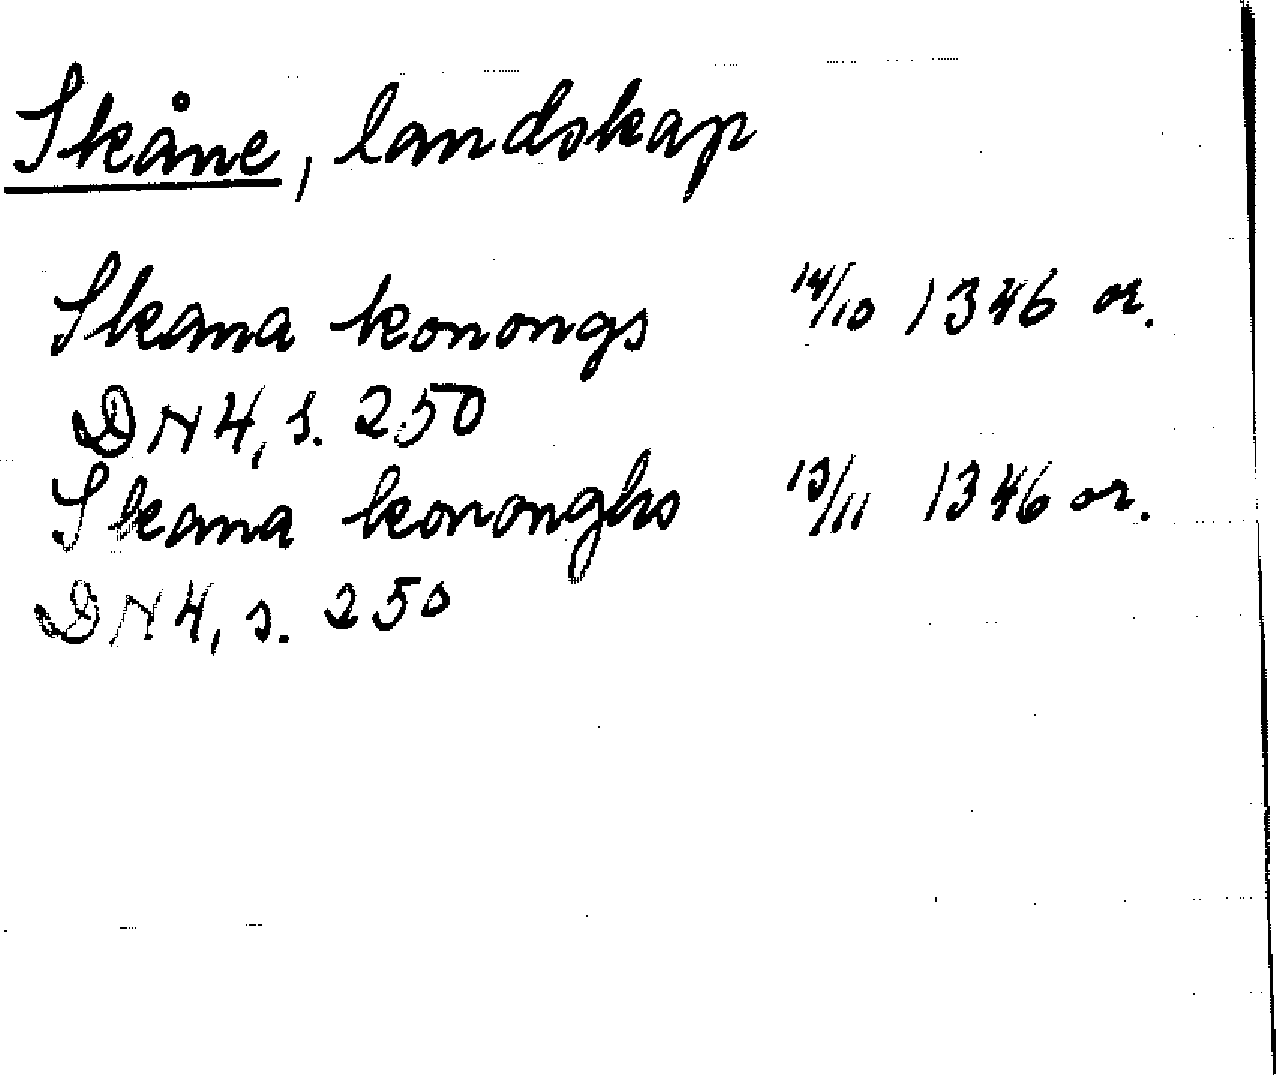 Skåne, landskap
Skana konongs 14/10 1346 or.
DN 4, s. 250
Skana kononghs 13/11 1346 or.
DN 4, s. 250